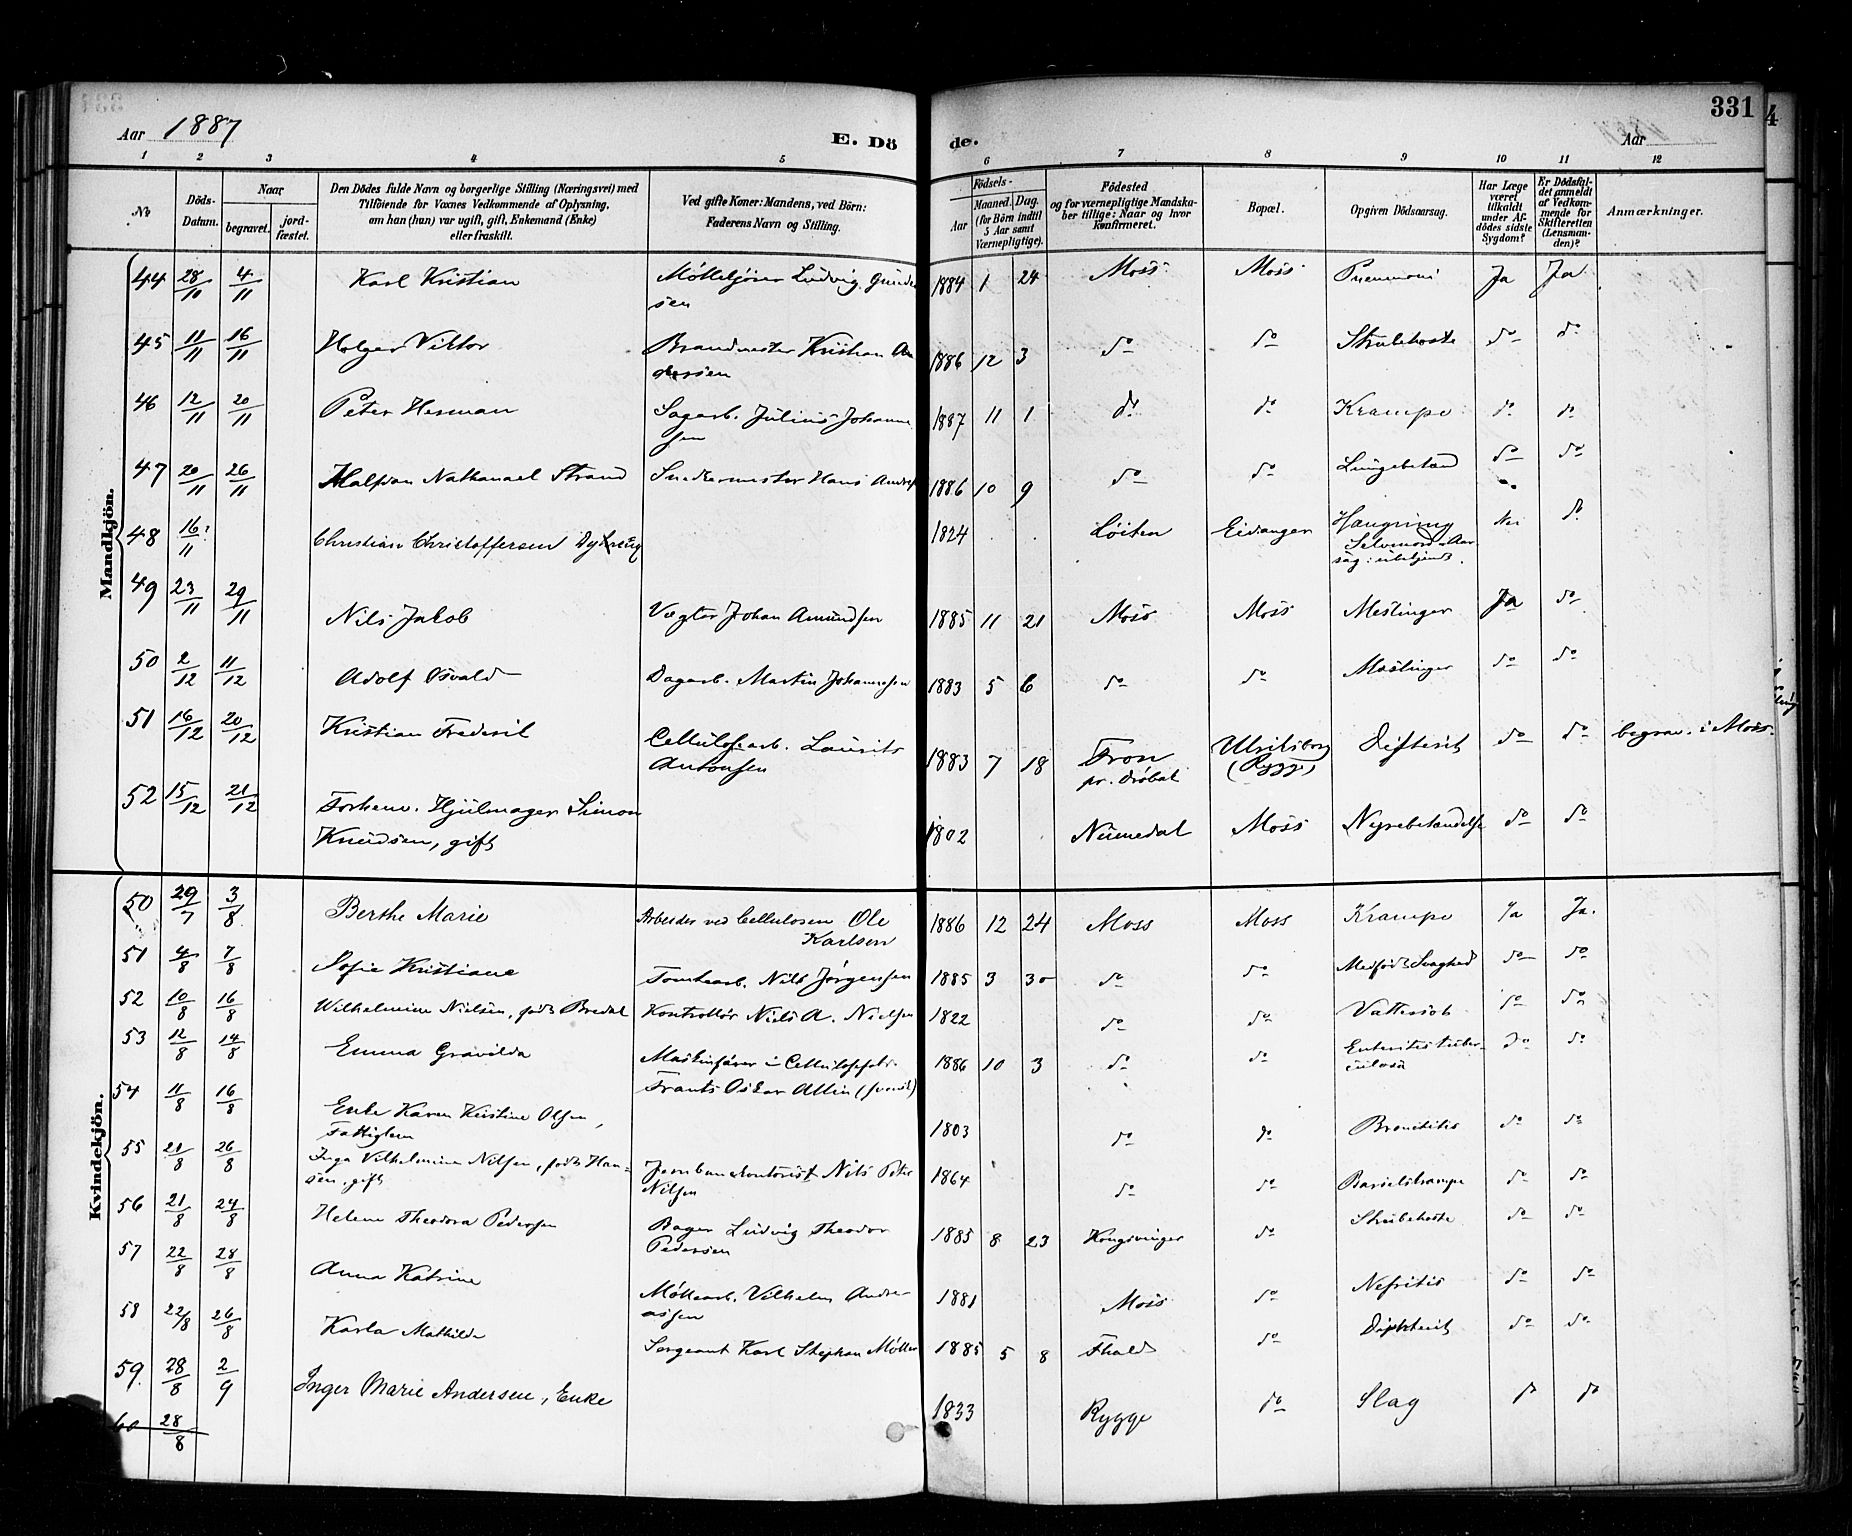 331
Aar 1887
E. Dö de.
Aar
1 2 3 4 5 6 7 8 9 10 11 12
No
Döds-Datum.
Naar
begravet.
jord-fæstet.
Den Dödes fulde Navn og borgerlige Stilling (Næringsvei) med
Tilföiende for Voxnes Vedkommende af Oplysning,
om han (hun) var ugift, gift, Enkemand (Enke)
eller fraskilt.
Ved gifte Koner: Mandens, ved Börn:
Faderens Navn og Stilling.
Födsels-
Aar
Maaned. Dag.
(for Börn indtil
5 Aar samt
Værnepligtige).
Födested
og for værnepligtige Mandska-
ber tillige: Naar og hvor
konfirmeret.
Bopæl.
Opgiven Dödsaarsag.
Har Læge
været
tilkaldt
under Af-
dödes sidste
Sygdom?
Er Dödsfal-
det anmeldt
af Vedkom-
mende for
Skifteretten
(Lensman-
den)?
Anmærkninger.
Mandkjön.
44 28/10 4/11 Karl Kristian Ludvig Gunder
sen 1884 1 24 Moss Moss Ja Ja
45 11/11 16/11 Holger Viktor Brandmester Kristian An
dersen 1886 12 3 do do Strubehoste do do
46 12/11 20/11 Peter Herman Sagarb. Julius Johanne
sen 1887 11 1 do do Krampe do do
47 20/11 26/11 Halfdan Nathanael Strand Snedkermester Hans 1886 10 9 do do Lungebetænd do do
48 16/11 Christian Christoffersen 1824 Löiten Eidanger Hængning Nei do
Selvmord Aar
sag: ubekjendt.
49 23/11 29/11 Nils Jakob Vægter Johan Amundsen 1885 11 21 Moss Moss Meslinger Ja do
50 2/12 11/12 Adolf Osvald Dagarb. Martin Johannesen 1883 5 6 do do Meslinger do do
51 16/12 20/12 Kristian Frederik Cellulosearb. Laurits
Antonsen 1883 7 18 Fron
pr. Dröbak (Rygge) Difterit do do begrav. i Moss.
52 15/12 21/12 Forhenv. Hjulmager Simon
Knudsen, gift 1802 Numedal Moss Nyrebetændelse do do
Kvindekjön.
50 29/7 3/8 Berthe Marie Arbeider ved Cellulosen Ole
Karlsen 1886 12 24 Moss Moss Krampe Ja Ja.
51 4/8 7/8 Sofie Kristiane Tomtearb. Nils Jørgensen 1885 3 30 do do Medfødt Svaghed do do
52 10/8 16/8 Wilhelmine Nielsen, født Bredal Kontrollør Niels A. Nielsen 1822 do do Vattersot do do
53 12/8 14/8 Emma Gravilda Maskinfører i Cellulosefabr.
Frants Oskar Allin (svensk) 1886 10 3 do do Enteritis tuber-
culosa do do
54 11/8 16/8 Enke Karen Kristine Olsen,
Fattiglem 1803 do do Bronchitis do do
55 21/8 26/8 Inga Vilhelmine Nilsen, født Han-
sen, gift Jernbanekontorist Nils Peter
Nilsen 1864 do do Barselskrampe do do
56 21/8 24/8 Helene Theodora Pedersen Bager Ludvig Theodor
Pedersen 1885 8 23 Kongsvinger do Strubehoste do do
57 22/8 28/8 Anna Katrine Møllearb. Vilhelm Andre-
asen 1881 Moss do Nefritis do do
58 22/8 26/8 Karla Mathilde Sergeant Karl Stephan Møller 1885 5 8 Fhald do Diphterit do do
59. 28/8 2/9 Inger Marie Andersen, Enke 1833 Rygge do Slag do do
60 28/8